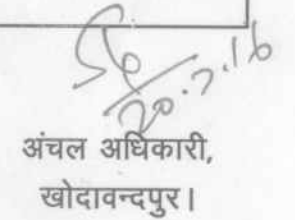 20.7.16
अंचल अधिकारी,
खोदावन्दपुर।